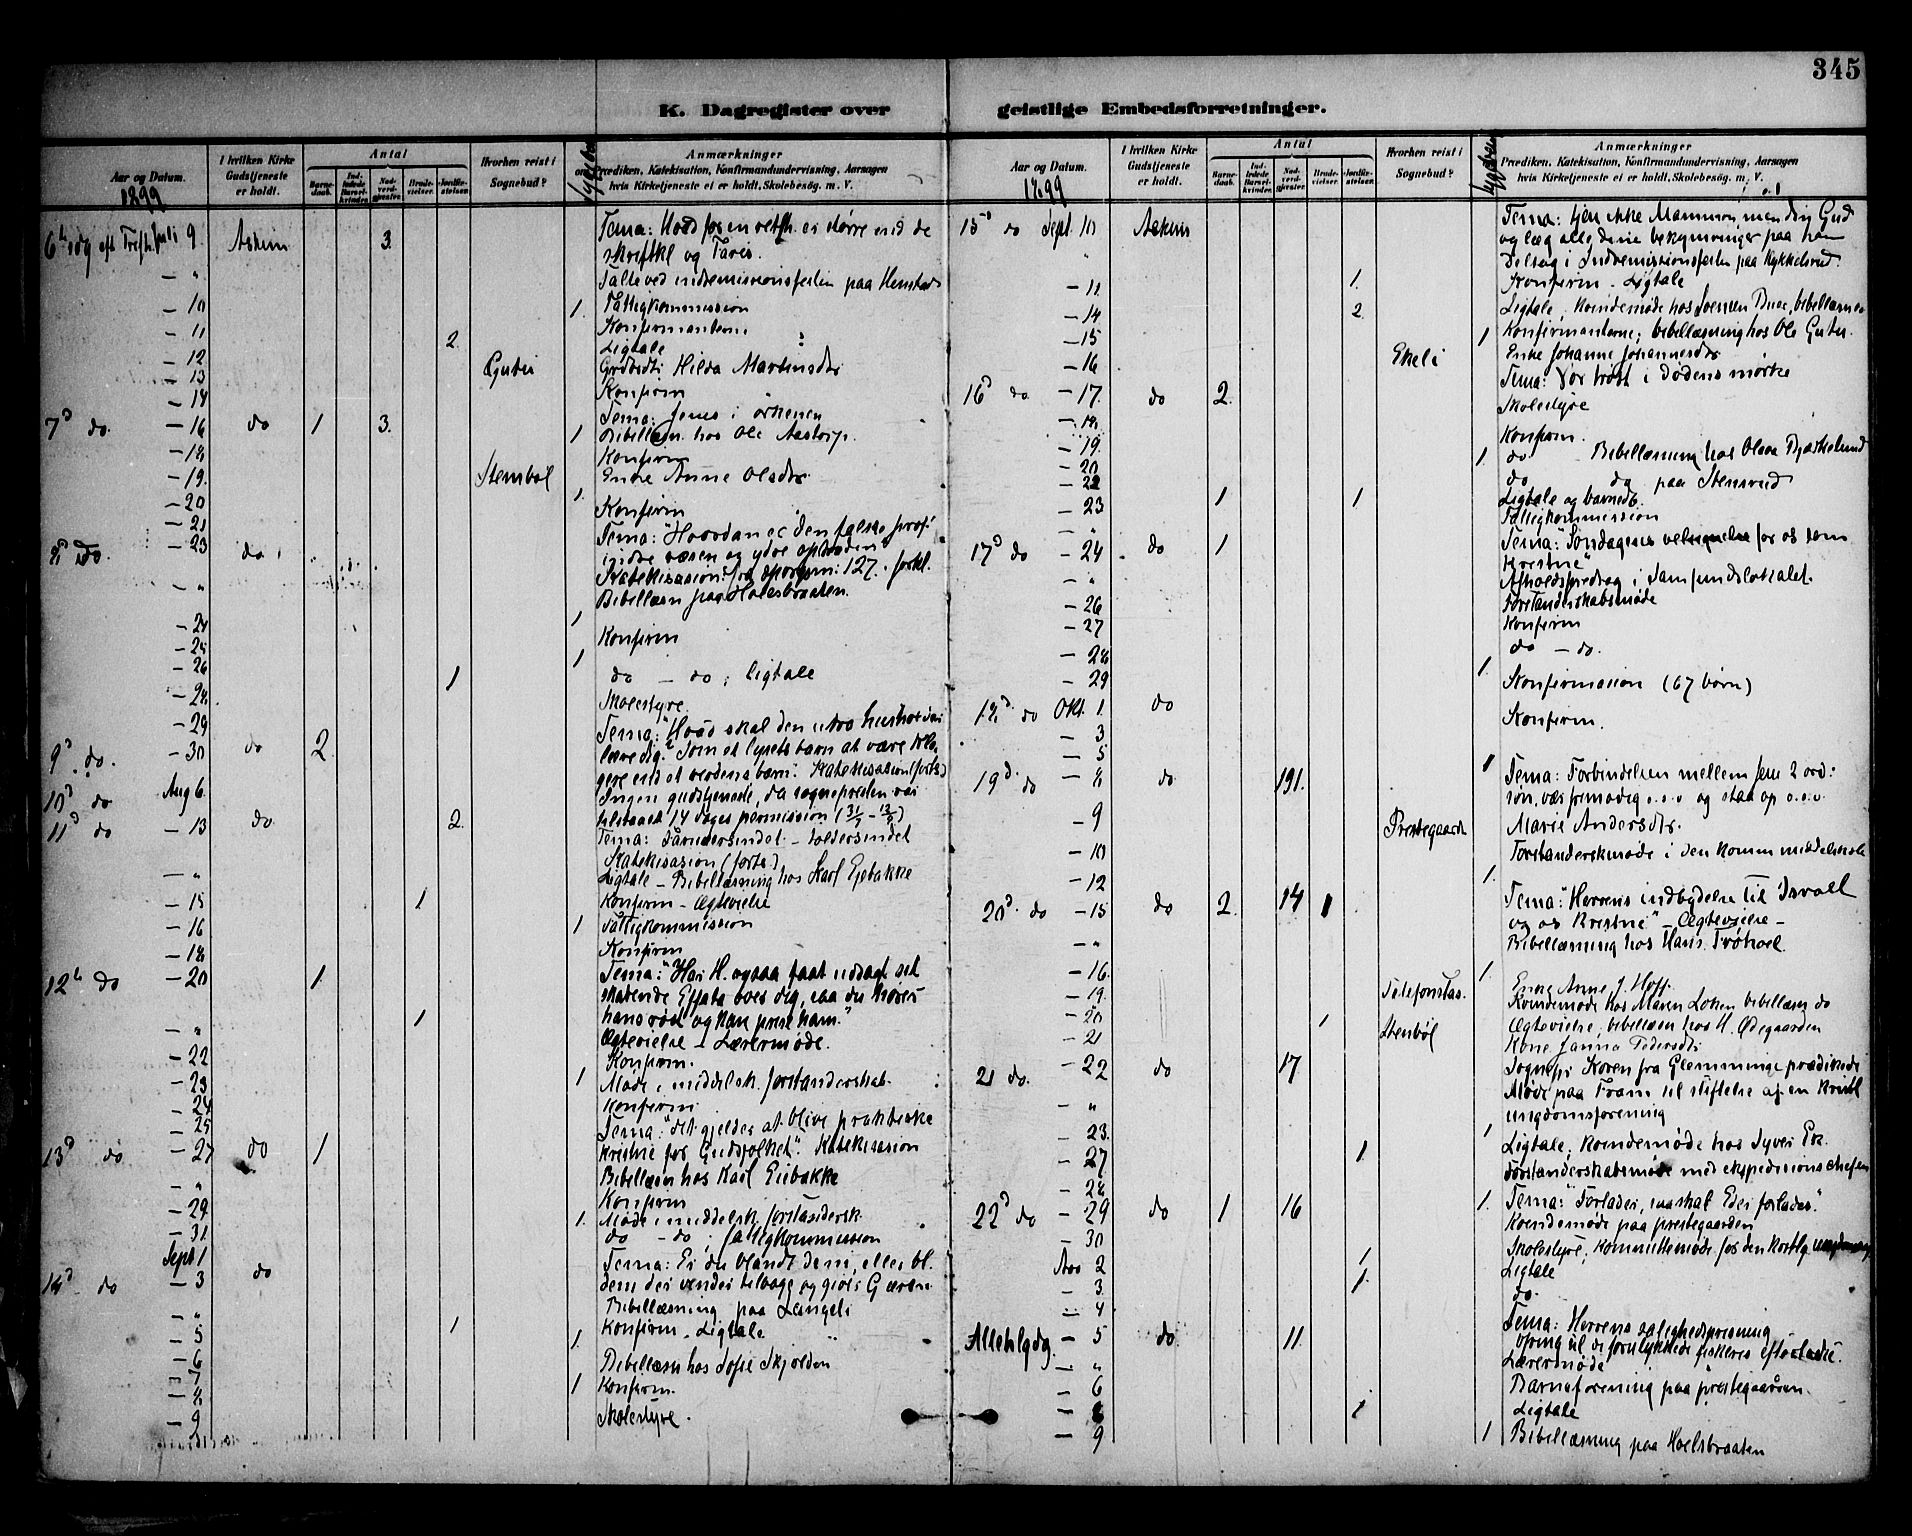 345
K. Dagregister over geistlige Embedsforretninger.
Aar og Datum.
1899
I hvilken Kirke Gudstjeneste er holdt.
Antal
Barnedaab.
Indledede Barselkvinder.
Nadverdgjester.
Brudevielser.
Jordfæstelser.
Hvorhen reist i Sognebud?
Anmærkninger
Prædiken, Katekisation, Konfirmandundervisning, Aarsagen
hvis Kirketjeneste ei er holdt, Skolebesøg. m. V.
juli 9. Askim 3.
Tema:
skriftkl og Faris.
Talte ved indremissionsfesten paa
- 10 1. Fattigkommission
- 11 Konfirmanterne
2. Ligtale
- 12 Hilda Martinsdtr
- 13
- 14 Konfirm
7d do. - 16 do 1 3. Tema: Jesus i ørkenen
1 Bibellæsn. hos Ole Aastorp.
- 18 Konfirm
- 19. Stenbøl Enke Anne Olsdtr.
- 20 1.
- 21 Konfirm
- 23 do Tema: "Hvordan er den falske prof:
indre væsen og ydre optræden"
Katekisasion: fra spørgsm: 127. forkl.
- " Bibellæsn paa Holesbraaten.
- 24 1
- 25 Konfirm
- 26 1 do - do; Ligtale
- 28. 1
- 29 Skolestyre.
9d do. - 30 do 2 Tema: "Hvad skal den utro husholder
lære dig." Som et lysets barn at være klo-
gere end et verdens barn". Katekisasion (forts)
10d do Aug 6. Ingen gudstjeneste, da sognepresten var
tilstaaet 14 dages permission (31/7 - 13/8)
11d do - 13 do 2. Tema: Taaresindet - toldersindet
Katekisasion (forts)
- " Ligtale - Bibellæsning hos Karl Ejebakke
- 15 1 Konfirm - Ægtevielse
- 16 1 Fattigkommission
- 18 Konfirm
12te do - 20 1. Tema: "Har H. ogsaa faat udsagt sit
skabende Effata over dig, saa du hører
hans røst og kan prise ham."
- " 1 Ægtevielse - Lærermøde.
- 22 Konfirm.
- 23 1 Møde i middelsk. forstanderskab.
- 24 Konfirm
- 25 Tema: "det gjelder at blive praktiske
13d do - 27 do 1 kristne før Gudsfolket". Katekisasion
- " Bibellæsn hos Karl Eiebakke
- 29 Konfirm
- 31. 1. Møde i middelsk. forstandersk.
Sept 1 do - do; fattigkommission
14d do - 3 do Tema: Er du blandt dem, eller bl.
dem der vender tilbage og giver G æren.
- " Bibellæsning paa Langeli
- 5 1 Konfirm - Ligtale
- 6 1. Bibellæsn hos Sofie Skjolden
- 7
- 8 1 Konfirm.
- 9 Skolestyre.
Aar og Datum.
1899
I hvilken Kirke Gudstjeneste er holdt.
Antal
Barnedaab.
Indledede Barselkvinder.
Nadverdgjester.
Brudevielser.
Jordfæstelser.
Hvorhen reist i Sognebud?
Anmærkninger
Prædiken, Katekisation, Konfirmandundervisning, Aarsagen
hvis Kirketjeneste ei er holdt, Skolebesøg. m. V.
15d do Sept. 10 Askim Tema: tjen ikke Mammon, men din Gud
og læg alle dine bekymringer paa ham
" Deltog i Indremissionsfesten paa Kykkelsrud.
- 11. 1. Konfirm - Ligtale
- 14 2 Ligtale, Kvindemøde hos
- 15 1 Konfirmanterne; bibellæsning hos Ole
- 16 Ekeli Enke Johanne Johannesdtr
16d do - 17 do 2. Tema: Vor trøst i dødens mørke
- 18 Skolestyre
- 19. Konfirm.
- 20 1. do Bibellæsning hos Olava
- 22 do do paa Stensrud
- 23 1 1 Ligtale og barned.
- " Fattigkommission
17d do - 24 do 1 Tema: "Søndagens velsignelse for os som
kristne"
- " Afholdsforedrag i Samfundslokalet.
- 26 Forstanderskabsmøde
- 27 Konfirm
- 28 do - do.
- 29 1. Konfirmasion (67 børn)
18d do Okt. 1. do
- 3 Konfirm.
- 5
19d. do - 8 do 191. 1 Tema: Forbindelsen mellem Jesu 2 ord:
søn, vær frimodig o.s.v og staa op o.s.v.
- 9 Prestegaarden Marie Andersdtr.
- 10 Forstanderskmøde i den komm middelskole
- 12 1.
20d. do - 15 do 2 14 1 Tema: "Herrens indbydelse til Israel
og os kristne" - Ægtevielse -
- " Bibellæsning hos Hans Frøhoel
- 16. 1.
- 19. Telefonstas. Enke Anne J. Hoff
- 20 1 Kvindemøde hos Maren Loken bibellæsn do
- 21 Stenbøl Ægtevielse, bibellæsn hos H. Ødegaarden
Kone Janna Pedersdtr
21 do. - 22 do 17 Sognepr Koren fra Glemminge prædikede
- " Møde paa Fram til stiftelse af en kristl
ungdomsforening
- 23. 1
- 27 1. Ligtale, Kvindemøde hos Syver
- 28 Forstanderskabsmøde med ekspedisionschefen
22d do - 29 do 1 16 1. Tema: "Forlader, saa skal Eder forlades".
- 30 Kvindemøde paa prestegaarden
Nov 2 1 Skolestyre, komittemøde for den kristlg
- 3 1. Ligtale
- 4 do
Allehlgdg - 5 do 11. Tema: Herrens salighedsprisning
ofring til de forulykkede fiskeres efterladte.
- " Lærermøde
- 6 Barneforening paa prestegaarden.
- 8 1 Ligtale
- 9 1 Bibellæsning paa Hoelsbraaten